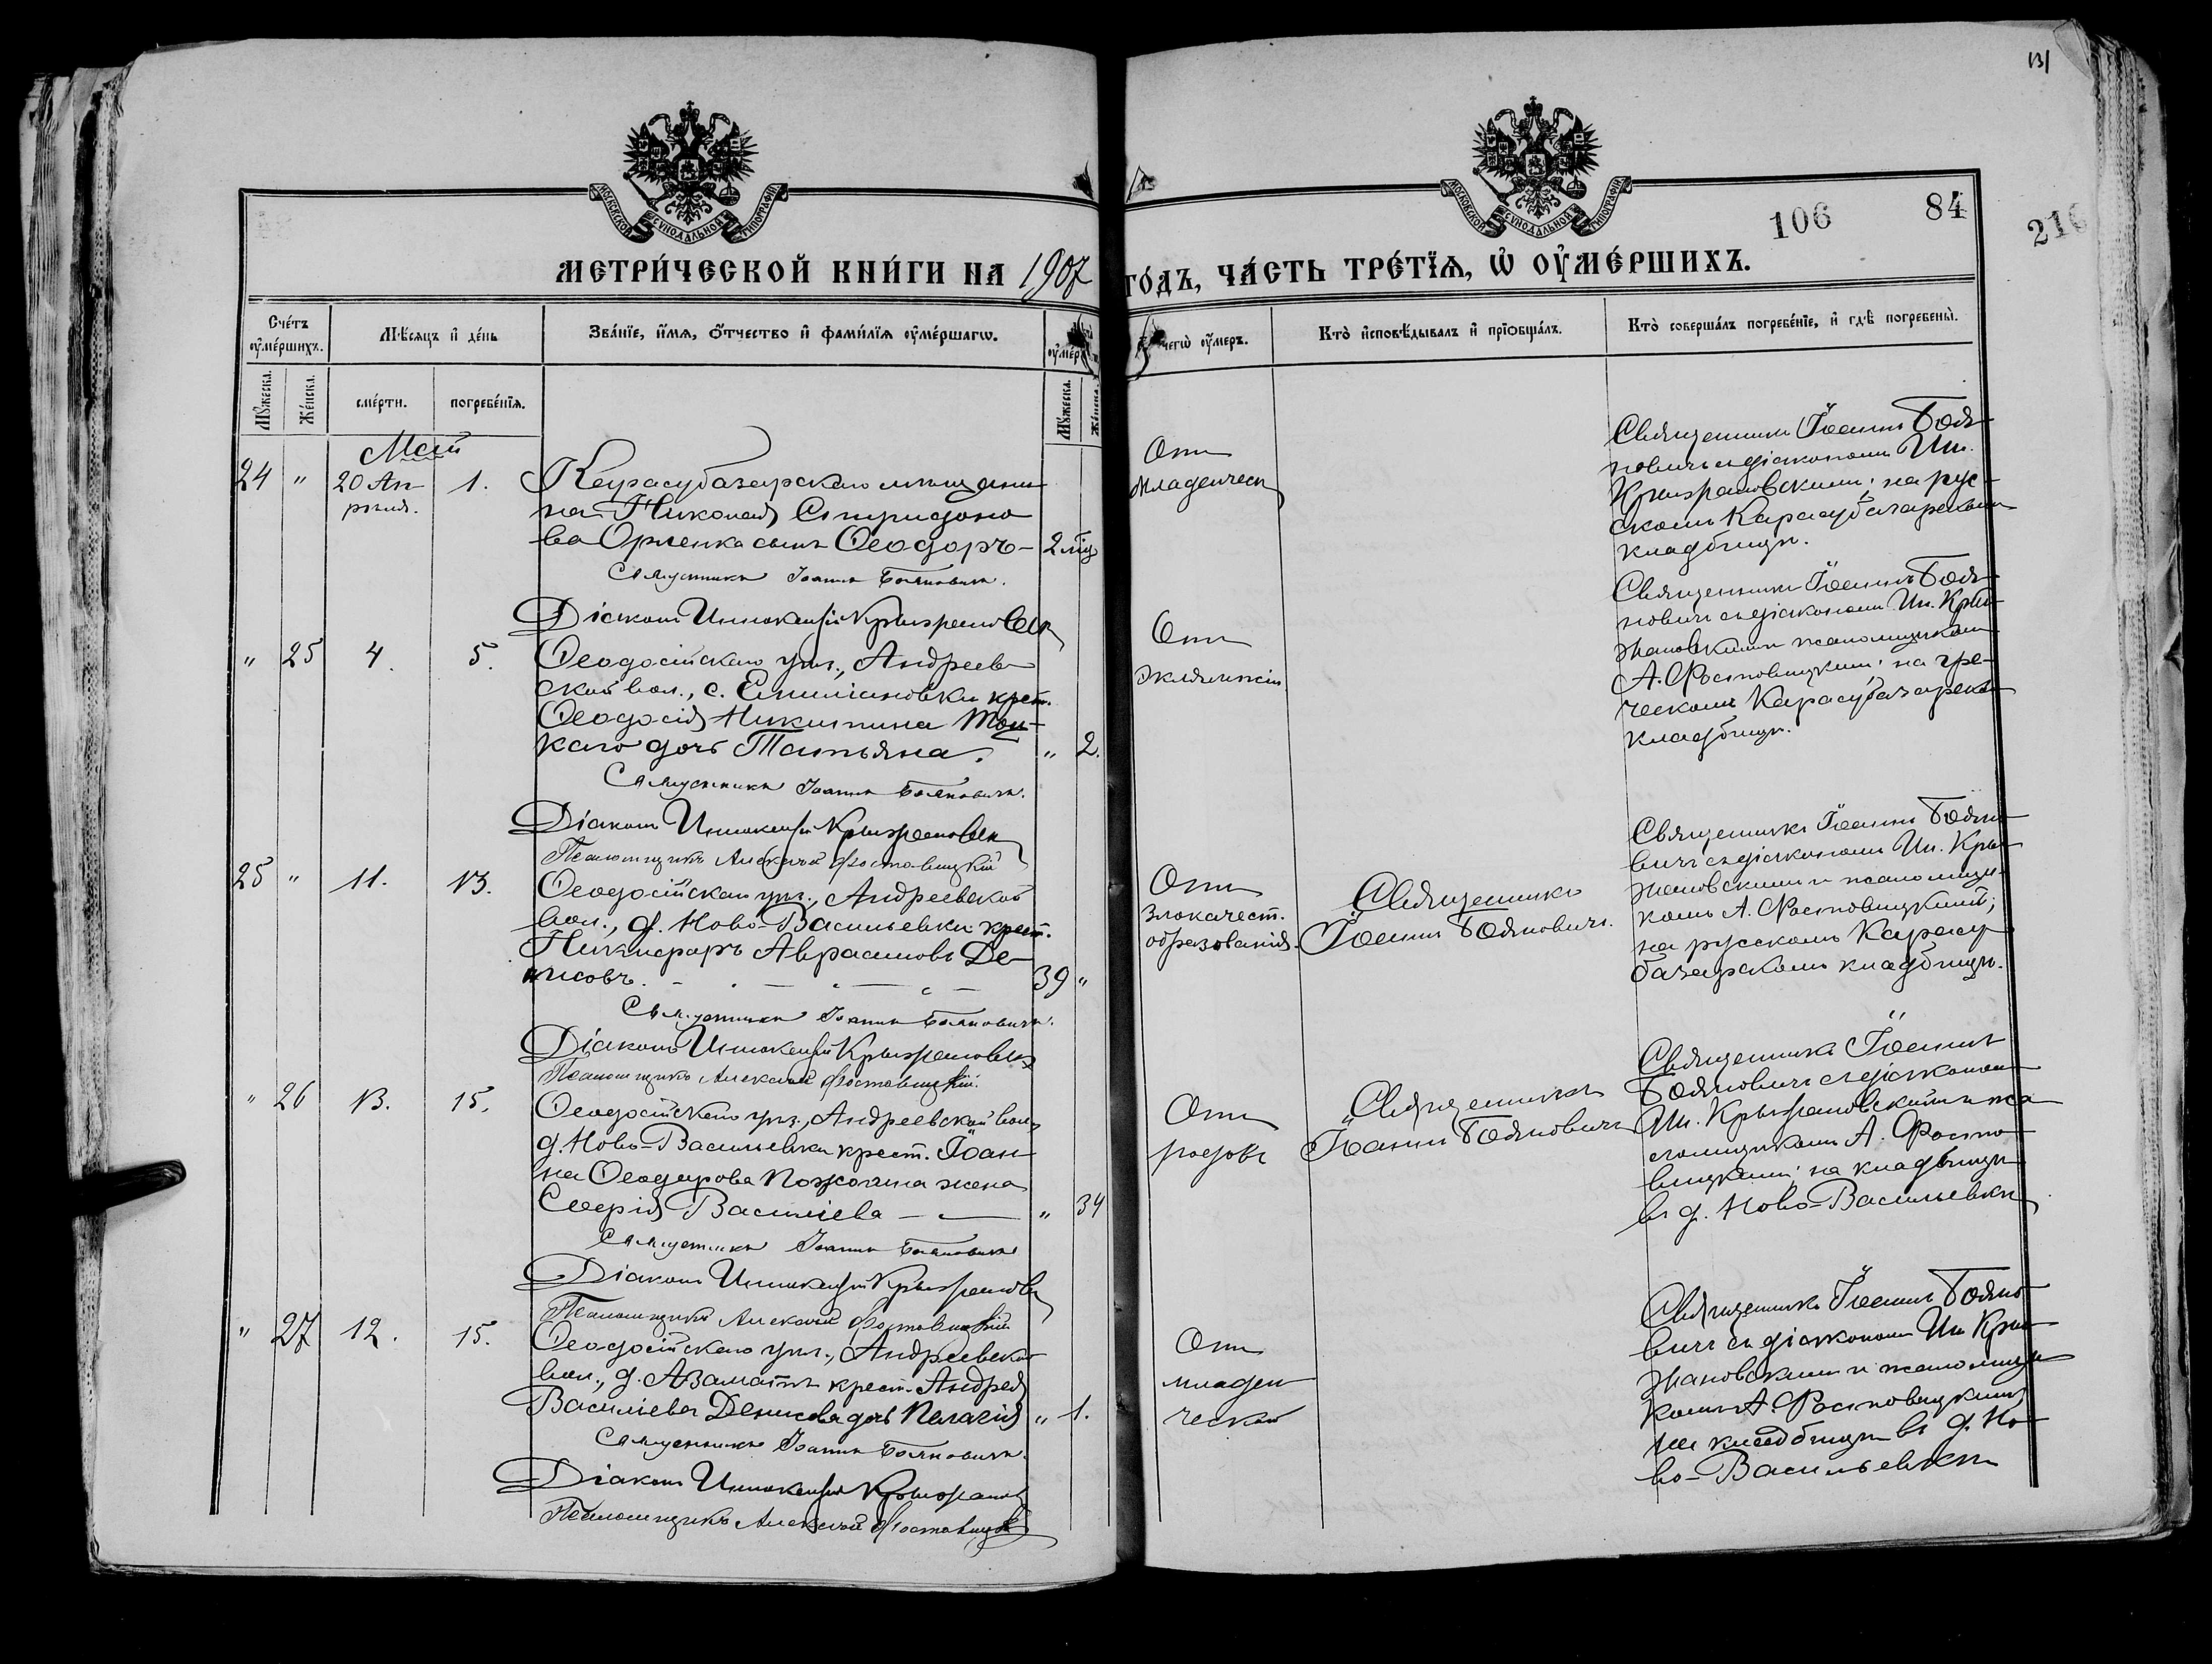 131
МОСКОВСКОЙ СѴНОДАЛЬНОЙ ТИПОГРАФІИ
МОСКОВСКОЙ СѴНОДАЛЬНОЙ ТИПОГРАФІИ
106
84
216
МЕТРИ́ЧЕСКОЙ КНИ́ГИ НА 1907
ГО́ДЪ, ЧА́СТЬ ТРЕ́ТЇѦ, Ѡ҆ ОУ҆МЕ́РШИХЪ.
Сче́тъ оу҆ме́ршихъ.
Мѣ́сяцъ и҆ де́нь
Зва́нїе, и҆́мѧ, ѻ҆́тчество и҆ фами́лїѧ оу҆ме́ршагѡ.
чегѡ̀ оу҆́меръ.
Кто̀ и҆сповѣ́дывалъ и҆ прїѡбща́лъ.
Кто̀ соверша́лъ погребе́нїе, и҆ гдѣ̀ погребены̀.
Мꙋ́жеска.
Же́нска.
сме́рти.
погребе́нїѧ.
Мꙋ́жеска.
Же́нска.
Май
24 " 20 Ап-
рѣля.
1.
Карасубазарскаго мѣщани-
на Николая Спиридоно
ва Орленка сынъ Ѳеодоръ- 2 мѣс
Священникъ Іоаннъ Бояновичъ.
Діаконъ Иннокентій Крыжановск
Отъ
младенческ
Священникъ Іоаннъ Боя-
новичъ съ діакономъ Ин.
Крыжановскимъ; на рус-
скомъ Карасубазарскомъ
кладбищѣ.
" 25 4. 5.
Ѳеодосійскаго уѣз., Андреев-
ской вол., с. Емиліановки крест.
Ѳеодосія Никитина
каго дочь Татьяна. " 2.
Священникъ Іоаннъ Бояновичъ.
Діаконъ Иннокентій Крыжановск
Псаломщикъ Алексѣй Фостовицкій
Отъ
эклампсіи
Священникъ Іоаннъ Боя-
новичъ съ діакономъ Ин. Кры-
жановскимъ и псаломщикомъ
А. Фостовицкимъ; на гре-
ческомъ Карасубазарском
кладбищѣ.
25 " 11. 13.
Ѳеодосійскаго уѣз., Андреевской
вол., д. Ново-Васильевки крест.
Никифоръ Аврамовъ Де-
нисовъ. 39 "
Священникъ Іоаннъ Бояновичъ.
Діаконъ Иннокентій Крыжановск
Псаломщикъ Алексѣй Фостовицкій.
Отъ
злокачест.
образованія.
Священникъ
Іоаннъ Бояновичъ.
Священникъ Іоаннъ Бояно-
вичъ съ діакономъ Ин. Кры-
жановскимъ и псаломщи-
комъ А. Фостовицкимъ;
на русскомъ Карасу-
базарскомъ кладбищѣ.
" 26 13. 15.
Ѳеодосійскаго уѣз., Андреевской вол.,
д. Ново-Васильевки крест. Іоан-
на Ѳеодорова жена
Софія Василіева " 34
Священникъ Іоаннъ Бояновичъ
Діаконъ Иннокентій Крыжановск
Псаломщикъ Алексѣй Фостовицкій
Отъ
родовъ
Священникъ
Іоаннъ Бояновичъ
Священникъ Іоаннъ
Бояновичъ съ діакономъ
Ин. Крыжановскимъ и пса-
ломщикомъ А. Фосто-
вицкимъ; на кладбищѣ
въ д. Ново-Васильевкѣ
" 27 12. 15.
Ѳеодосійскаго уѣз., Андреевской
вол., д. Азаматъ крест. Андрея
Василіева Денисова дочь Пелагія " 1.
Священникъ Іоаннъ Бояновичъ.
Діаконъ Иннокентій Крыжановск
Псаломщикъ Алексѣй Фостовицкій
Отъ
младен-
ческой
Священникъ Іоаннъ Бояно-
вичъ съ діакономъ Ин. Кры-
жановскимъ и псаломщи-
комъ А. Фостовицкимъ
на кладбищѣ въ д. Но-
во-Васильевкѣ